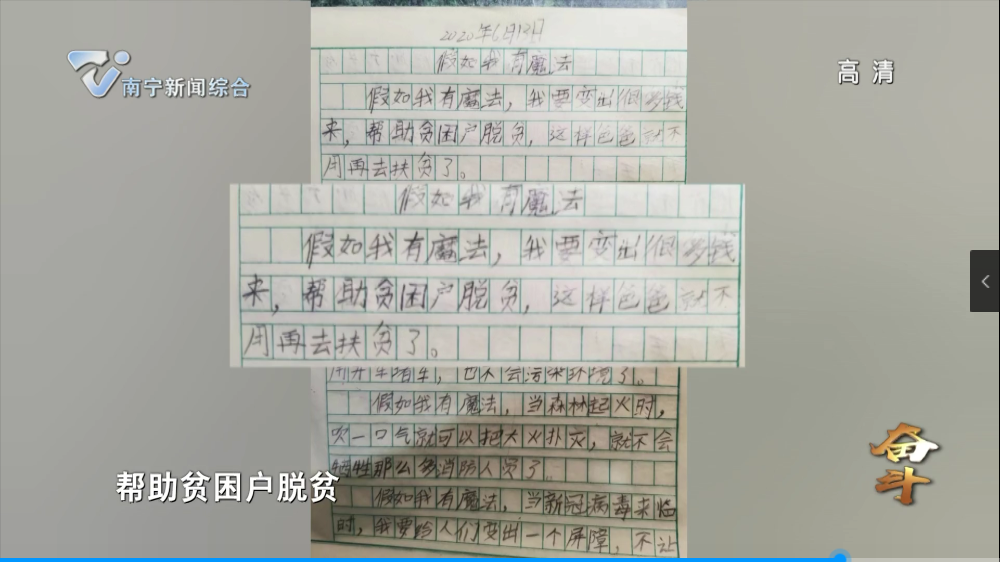 2020年6月13日
南宁新闻综合
高清
假如我有魔法
假如我有魔法，我要变出很多钱
来，帮助贫困户脱贫，这样爸爸就不
用再去扶贫了。
假如我有魔法
假如我有魔法，我要变出很多钱
来，帮助贫困户脱贫，这样爸爸就不
用再去扶贫了。
用开车堵车，也不会污染环境了。
假如我有魔法，当森林起火时，
吹一口气就可以把大火扑灭，就不会
牺牲那么多消防人员了
假如我有魔法，当新冠病毒来临
时，我要给人们变出一个屏障，不让
奋斗
帮助贫困户脱贫